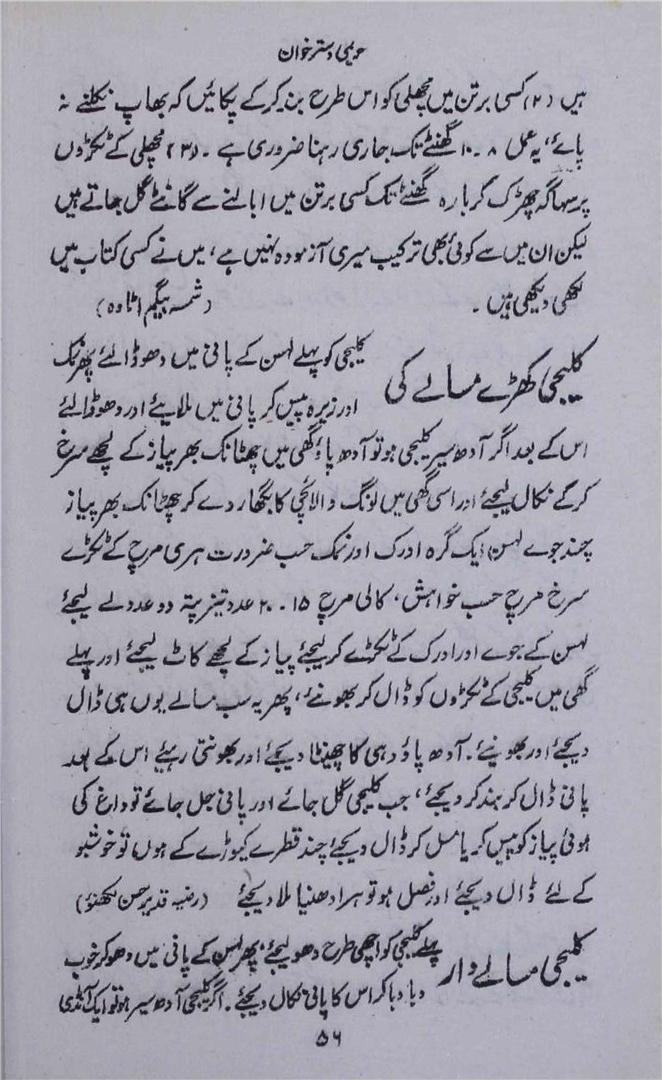 حریمی دسترخوان
ہیں (۲) کسی برتن میں مچھلی کو اس طرح بند کرکے پکائیں کہ بھاپ نکلنے نہ
پائے، یہ عمل ۸ ۔ ۱۰ گھنٹے تک جاری رہنا ضروری ہے ۔ (۳) ۲ مچھلی کے ٹکڑوں
پر سہاگہ چھڑک کر بارہ گھنٹے تک کسی برتن میں ابالنے سے کانٹے گل جاتے ہیں
لیکن ان میں سے کوئی بھی ترکیب میری آزمودہ نہیں ہے، میں نے کسی کتاب میں
لکھی دیکھی ہیں ۔ (شمسہ بیگم اٹاوہ)
کلیجی کھڑے مسالے کی
کلیجی کو پہلے لہسن کے پانی میں دھو ڈالئے پھر نمک
اور زیرہ پیس کر پانی میں ملایئے اور دھو ڈالئے
اس کے بعد اگر آدھ سیر کلیجی ہو تو آدھ پاؤ گھی میں چھٹانک بھر پیاز کے لچھے سرخ
کرکے نکال لیجئے اور اسی گھی میں لونگ و الائچی کا بگھار دے کر چھٹانک بھر پیاز
چند جوے لہسن، ایک گرہ ادرک اور نمک حسب ضرورت ہری مرچ کے ٹکڑے
سرخ مرچ حسب خواہش، کالی مرچ ۱۵ ۔ ۲۰ عدد تیز پتہ دو عدد لے لیجئے
لہسن کے جوے اور ادرک کے ٹکڑے کر لیجئے پیاز کے لچھے کاٹ لیجئے اور پہلے
گھی میں کلیجی کے ٹکڑوں کو ڈال کر بھونئے، پھر یہ سب مسالے یوں ہی ڈال
دیجئے اور بھونیئے ۔ آدھ پاؤ دہی کا چھینٹا دیجئے اور بھونتی رہیئے اس کے بعد
پانی ڈال کر بند کر دیجئے، جب کلیجی گل جائے اور پانی جل جائے تو داغ کی
ہوئی پیاز کو پیس کر یا مسل کر ڈال دیجئے چند قطرے کیوڑے کے ہوں تو خوشبو
کے لئے ڈال دیجئے اور فصل ہو تو ہرا دھنیا ملا دیجئے (رضیہ قدیر حسن لکھنؤ)
کلیجی مسالے دار
پہلے کلیجی کو اچھی طرح دھو لیجئے، پھر لہسن کے پانی میں دھو کر خوب
دبا دبا کر اس کا پانی نکال دیجئے ۔ اگر کلیجی آدھ سیر ہو تو ایک آنڈی
۵۶